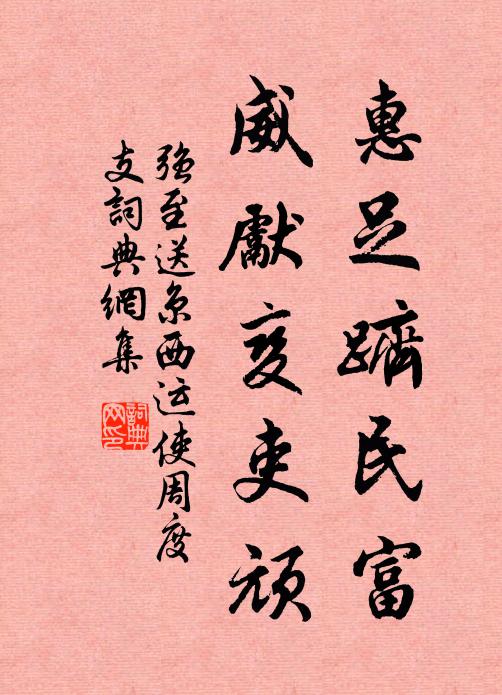 惠足躋民富
威獻变吏頑
强至送京西运使周度
支詞典網集
詞典
网印